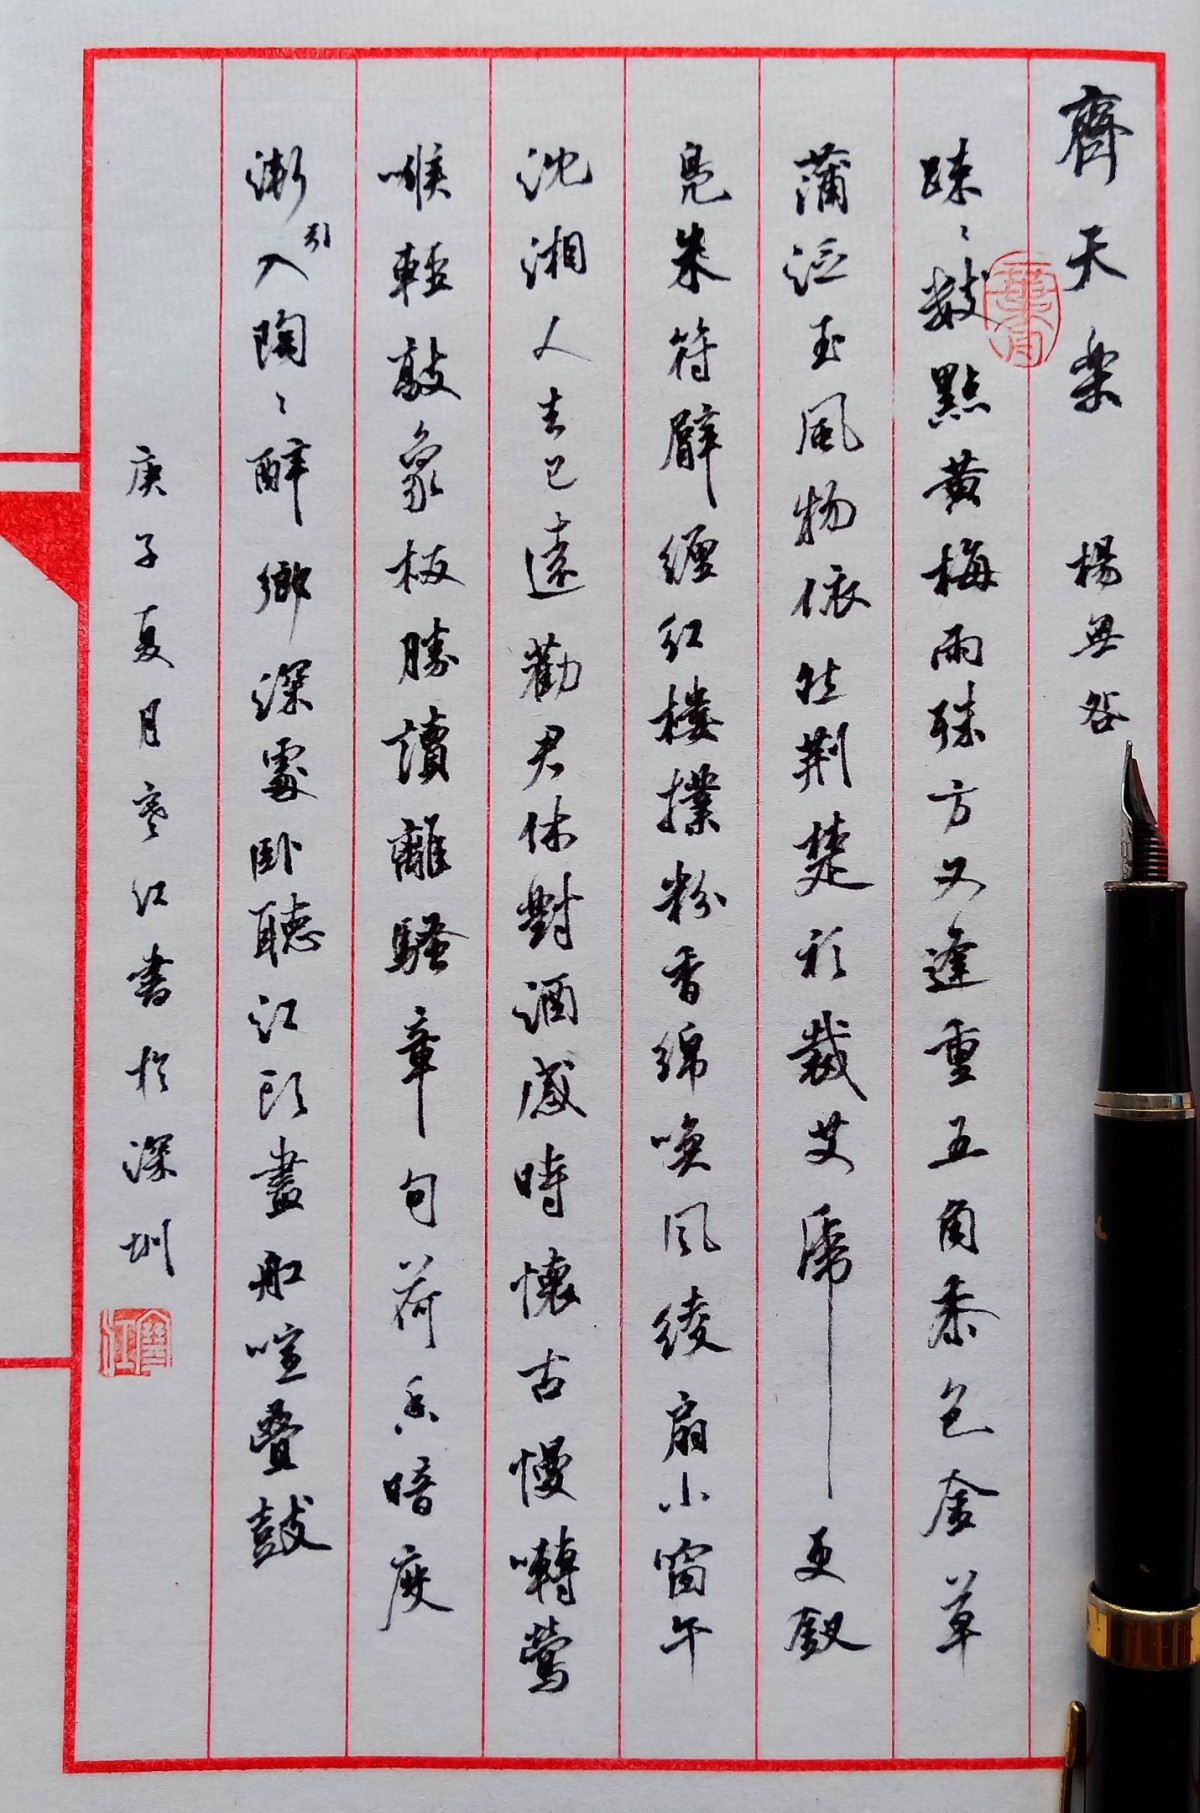 齊天樂 楊無咎
疎〻數點黃梅雨殊方又逢重五角黍包金草
蒲泛玉風物依然荆楚衫裁艾虎更釵
裊朱符臂纏紅縷撲粉香綿喚風綾扇小窗午
沈湘人去已遠勸君休對酒感時懷古慢囀鶯
喉輕敲象板勝讀離騷章句荷香暗度
漸引入陶〻醉鄉深處卧聽江頭畫船喧疊鼓
庚子夏月寒江書於深圳